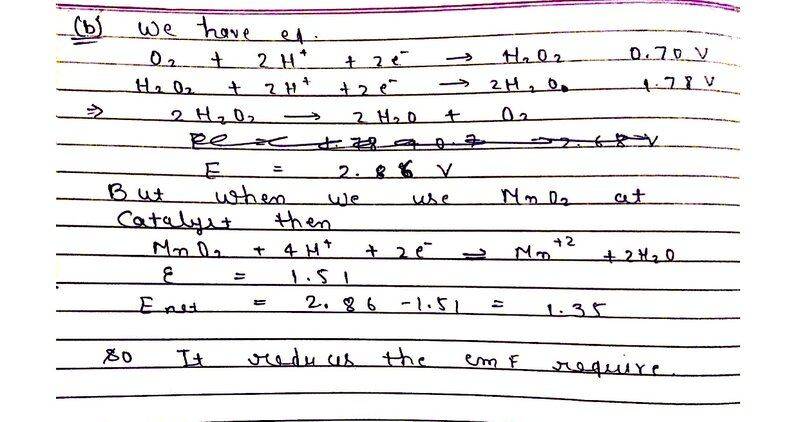 (b) We have eq.
O₂ + 2H⁺ + 2e⁻ → H₂O₂ 0.70 V
H₂O₂ + 2H⁺ + 2e⁻ → 2H₂O 1.78 V
⇒ 2H₂O₂ → 2H₂O + O₂
E = 2.86 V
But when we use MnO₂ at
Catalyst then
MnO₂ + 4H⁺ + 2e⁻ ⇒ Mn⁺² + 2H₂O
E = 1.51
Enet = 2.86 - 1.51 = 1.35
So It reduces the emf require.